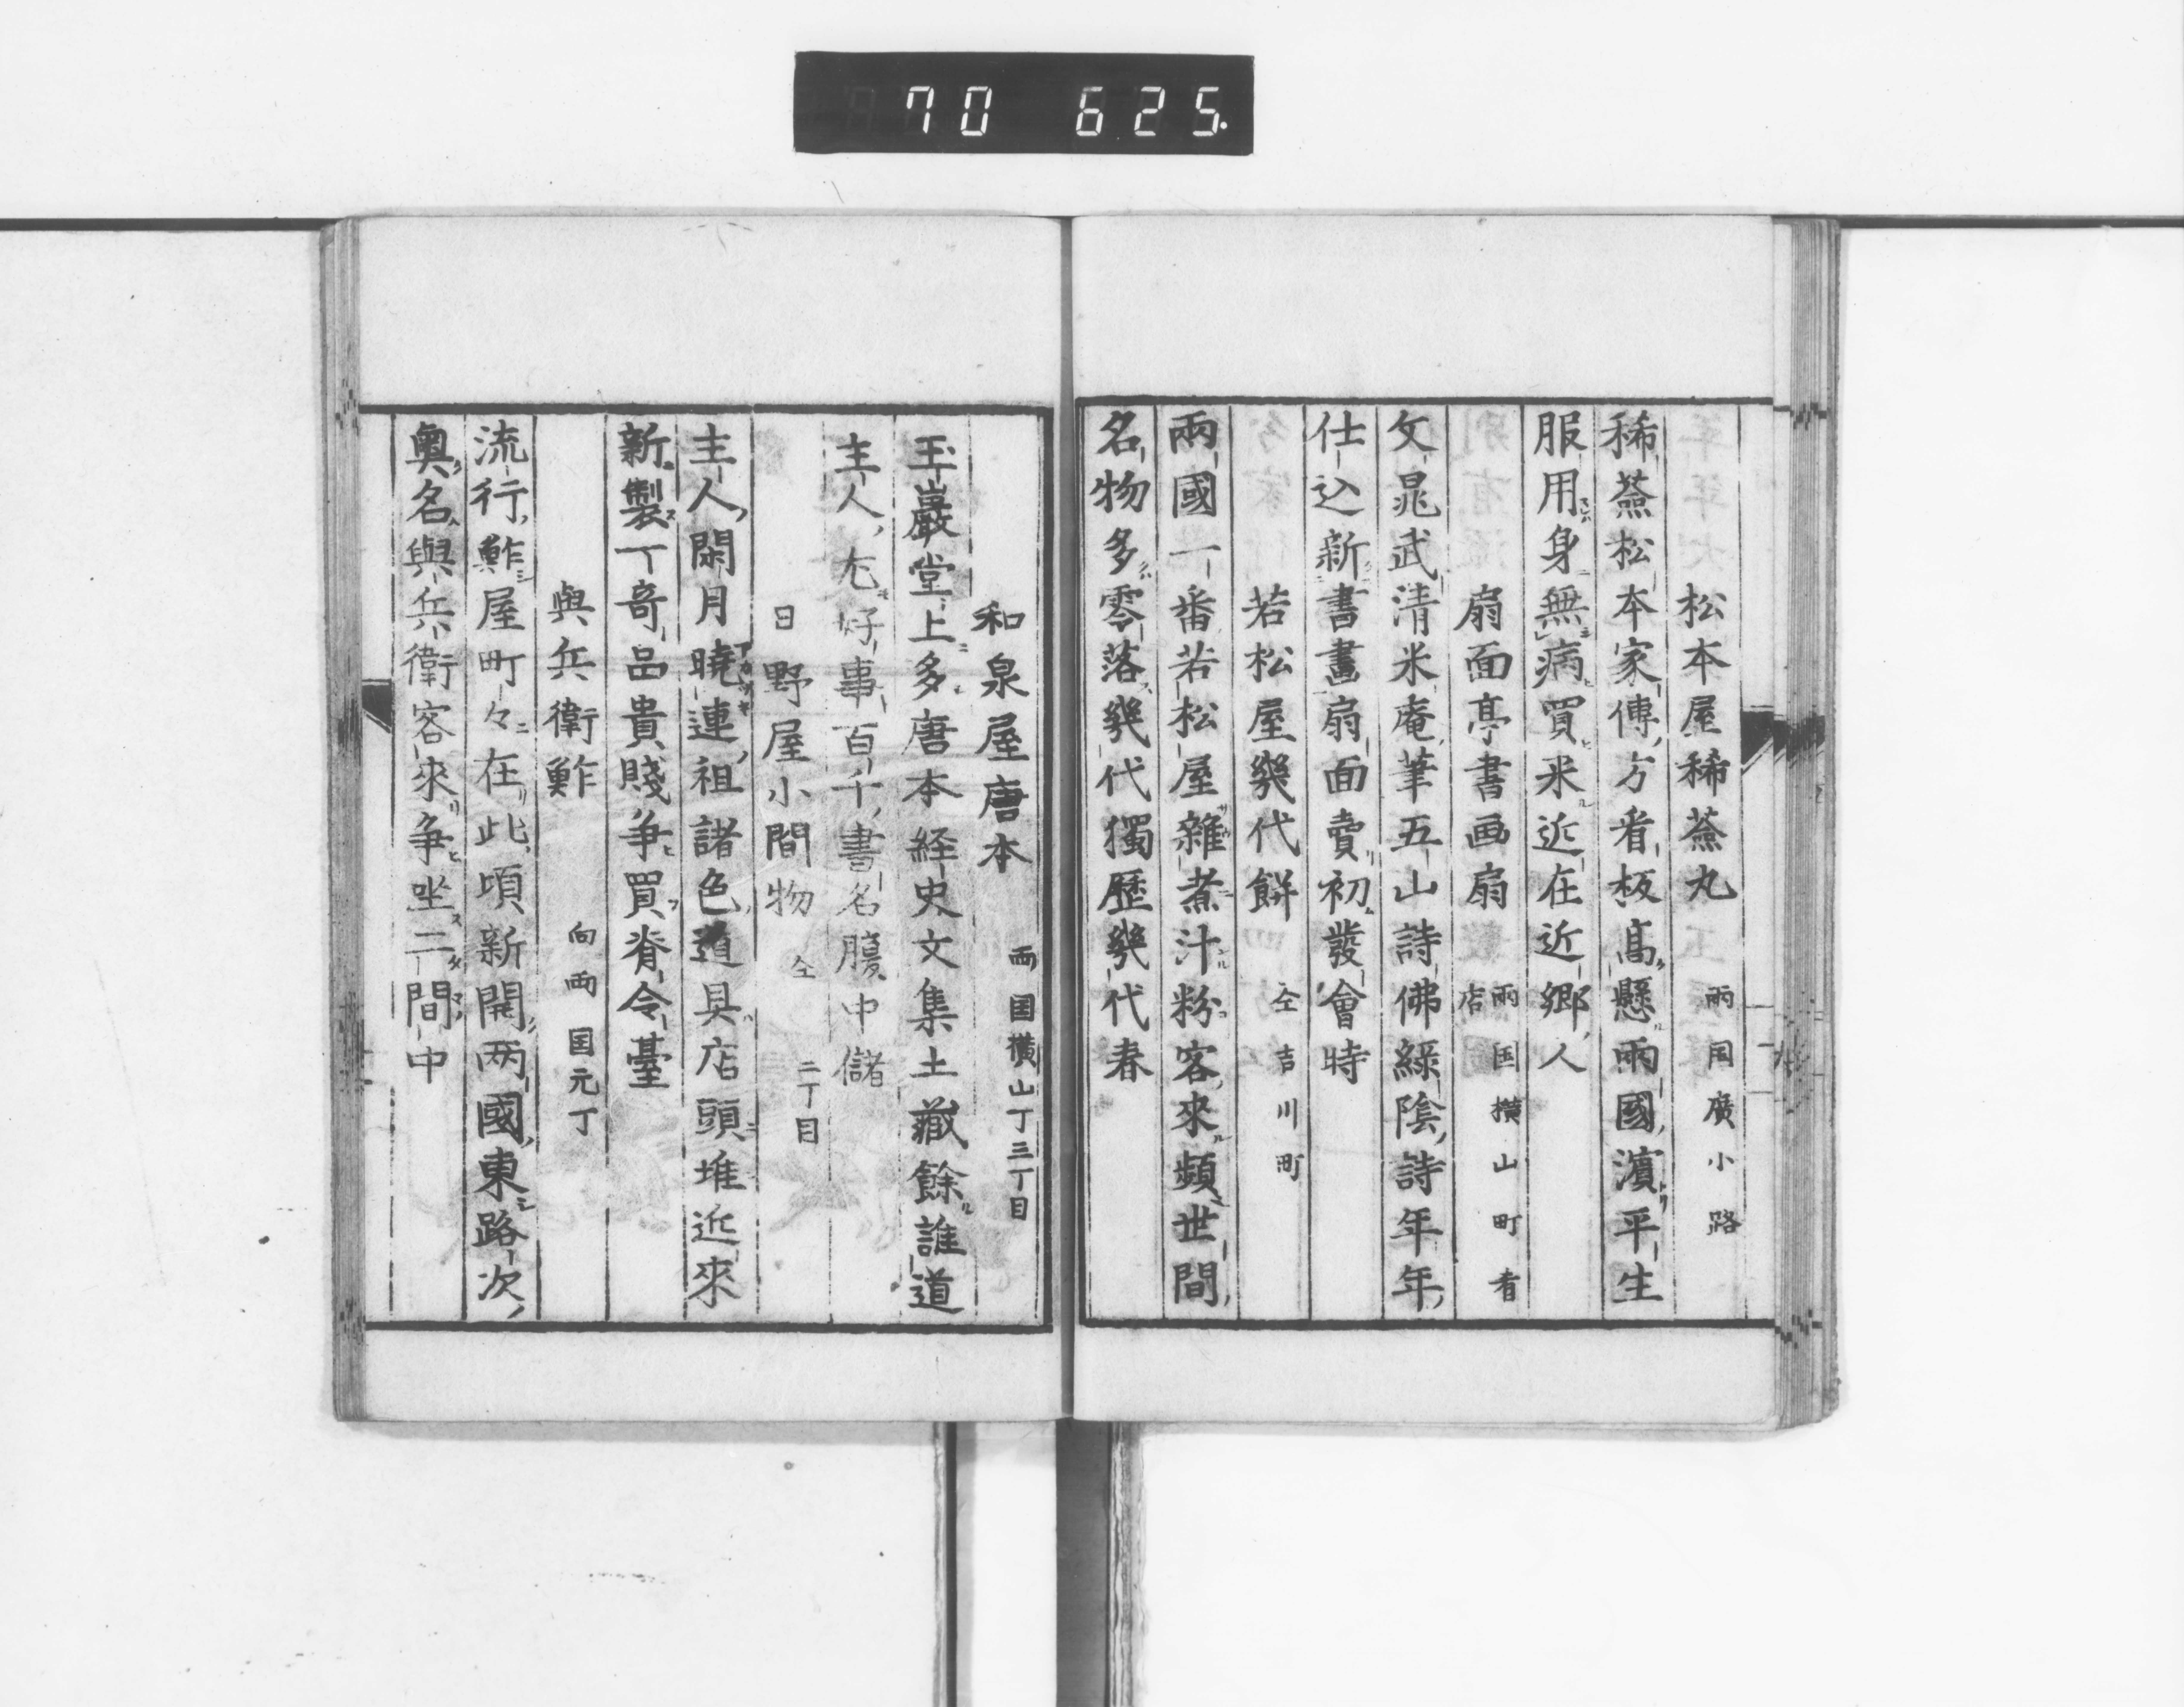 70 625.
松本屋稀薟丸 兩国廣小路
稀薟松本家傳方看板高懸兩國濱平生
服用身無病買来近在近郷人
扇面亭書画扇 兩国横山町看店
文晁武清米庵筆五山詩佛緑陰詩年年
仕込新書畫扇面賣初發會時
若松屋幾代餅 仝吉川町
兩國一番若松屋雜煮汁粉客來頻世間
名物多零落幾代獨歴幾代春
和泉屋唐本 両国横山丁三丁目
玉巖堂上多唐本経史文集土藏餘誰道
主人尤好事百千書名腹中儲
日野屋小間物 仝二丁目
主人閑月暁連祖諸色道具店頭堆近來
新製丁竒品貴賤争買脊令臺
與兵衛鮓 向両国元丁
流行鮓屋町々在此頃新開两國東路次
奥名與兵衛客來争坐二間中